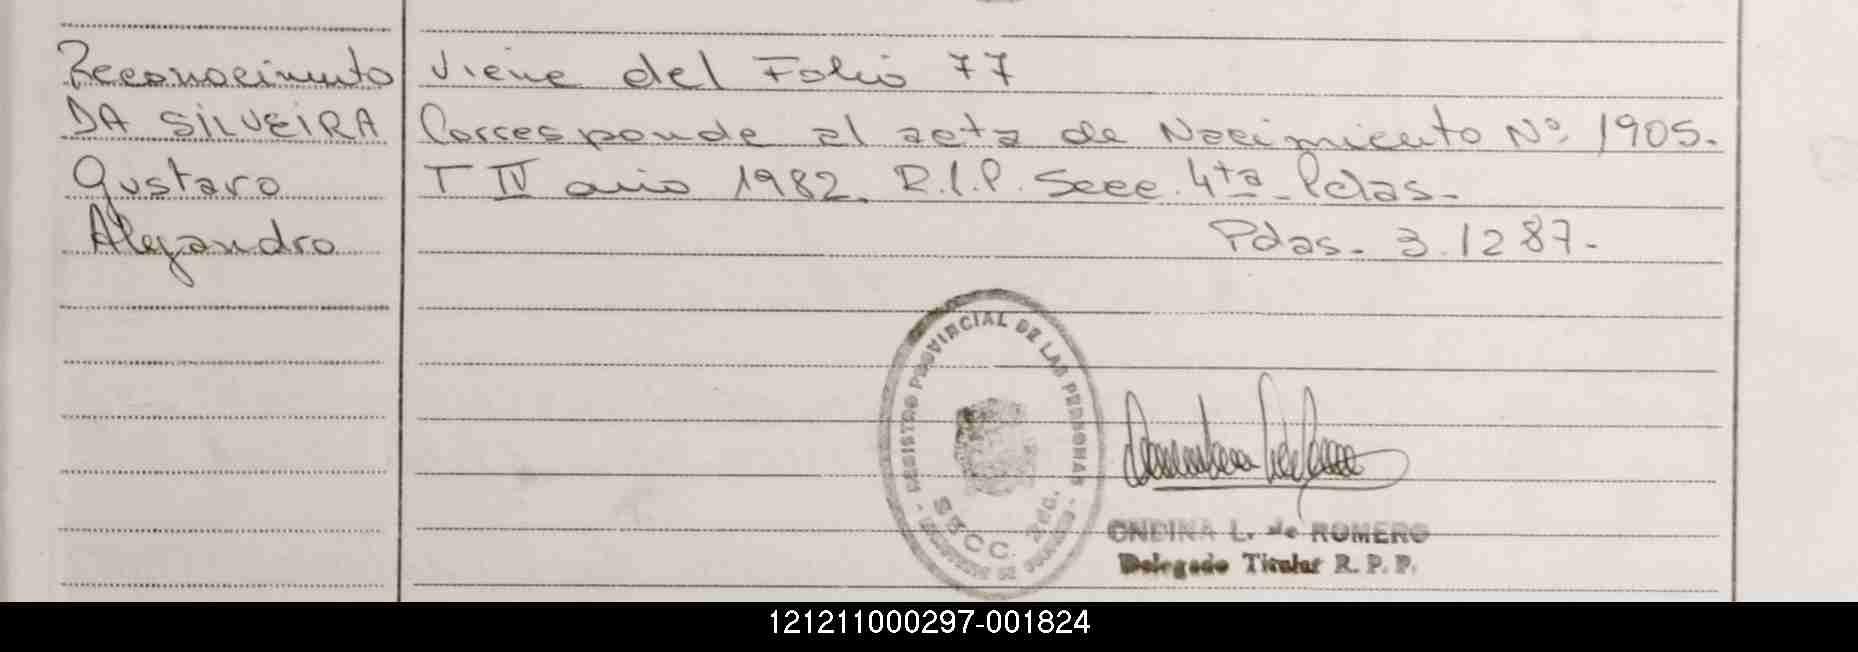 Reconocimiento
DA SILVEIRA
Gustavo
Alejandro
Viene del Folio 77
Corresponde al acta de Nacimiento Nº 1905.
T IV año 1982. R.I.P. Secc. 4ta Pdas.
Pdas. 3.1287.
REGISTRO PROVINCIAL DE LAS PERSONAS
SECC.
ONDINA L. de ROMERO
Delegado Titular R. P. P.
121211000297-001824